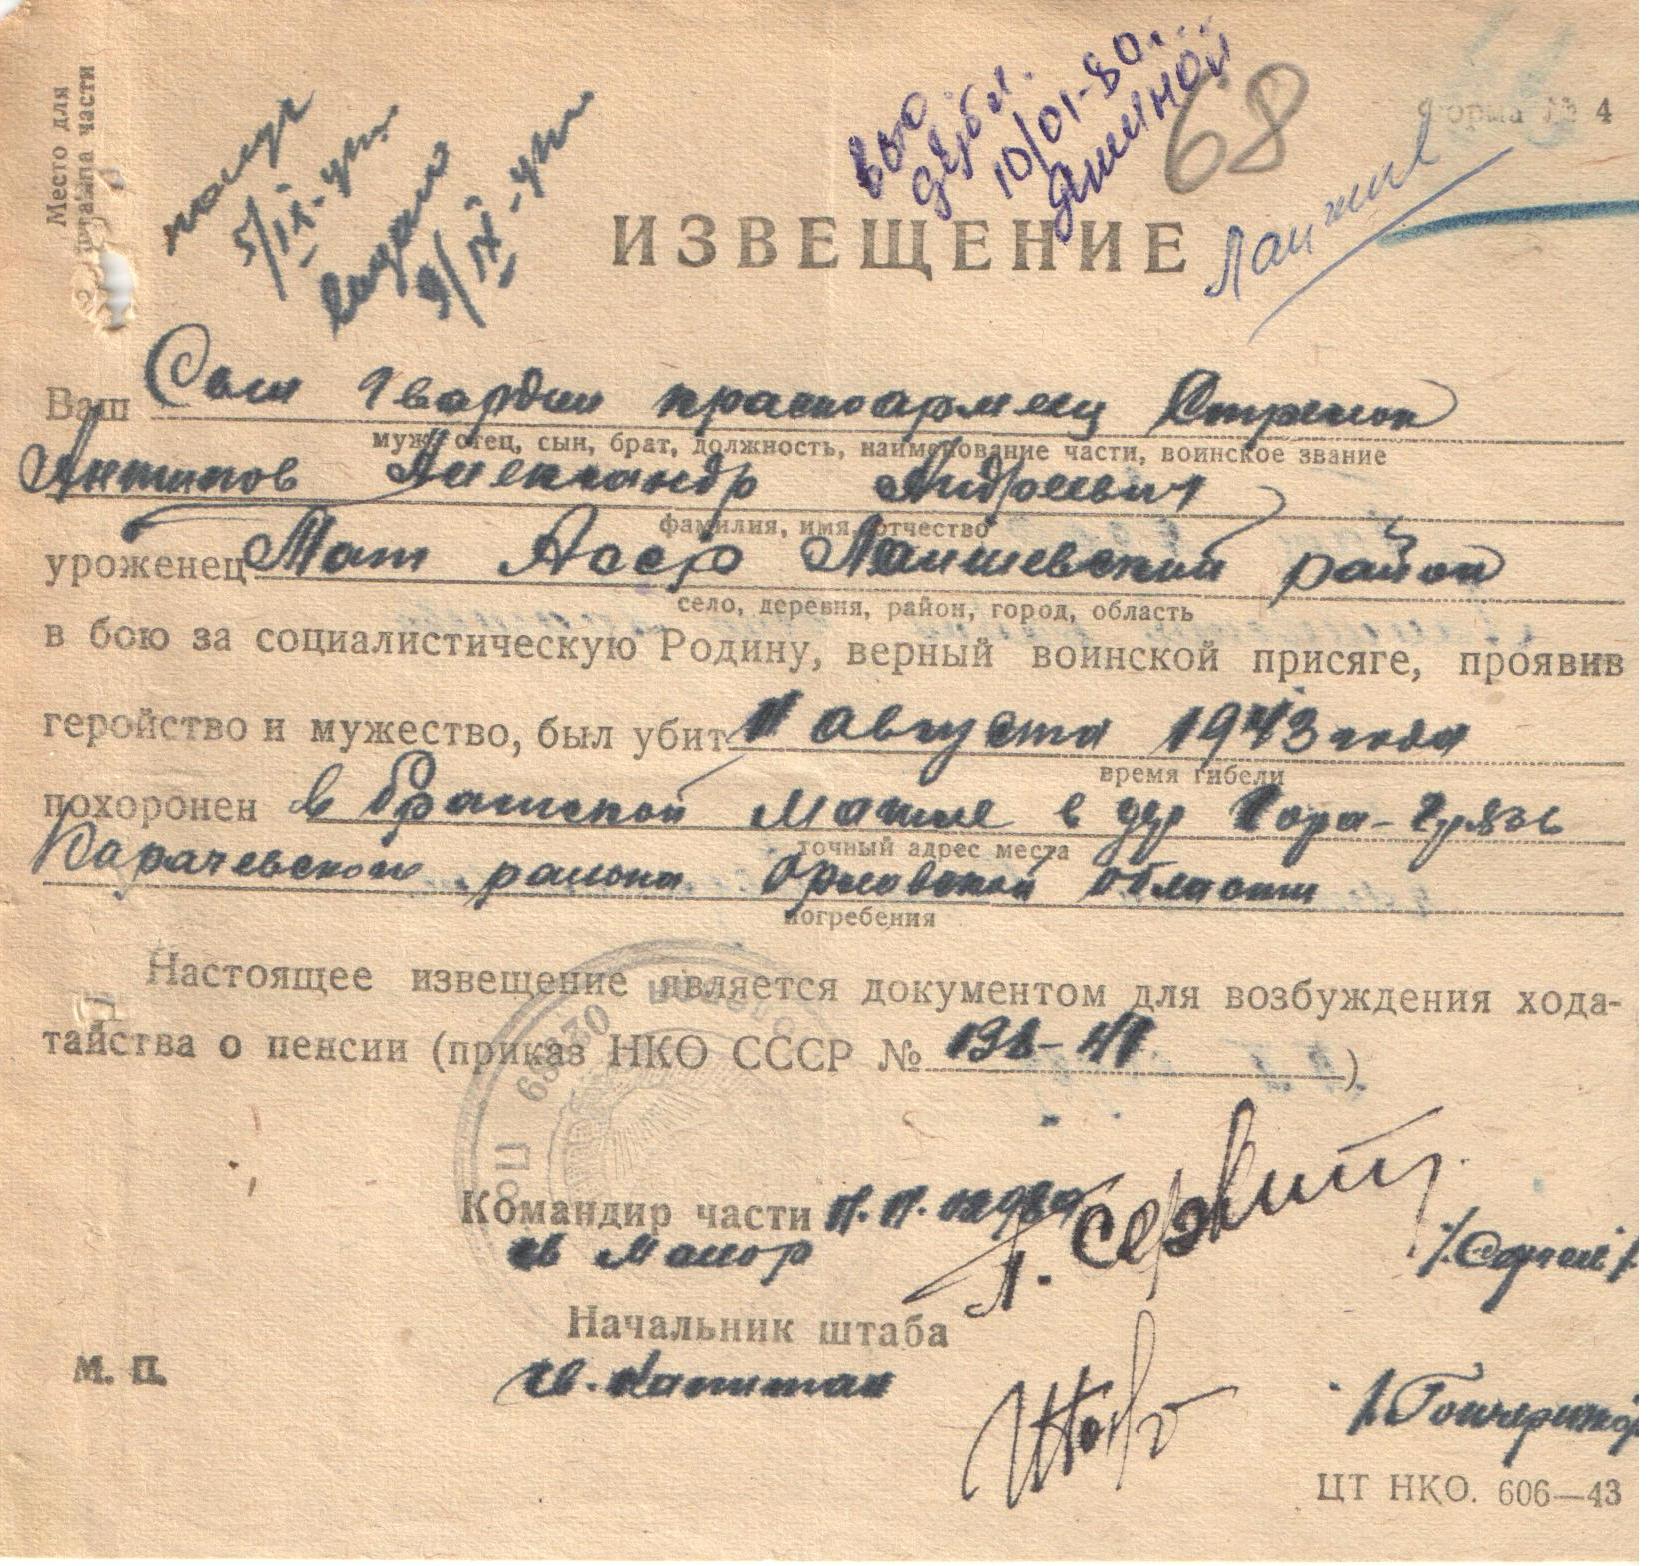 Место для
штампа части
получ
5/IX-ук
выдано
9/IX-ук
10/01-80.
68
Форма № 4
ИЗВЕЩЕНИЕ
Ваш Сын гвардии красноармеец Стрелок
муж, отец, сын, брат, должность, наименование части, воинское звание
Антипов Александр Андреевич
фамилия, имя, отчество
уроженец Тат Асср Лаишевский район
село, деревня, район, город, область
в бою за социалистическую Родину, верный воинской присяге, проявив
геройство и мужество, был убит 11 августа 1943 года
время гибели
похоронен в братской могиле в дер Гора-Грязь
точный адрес места
Карачевского района Орловской области
погребения
Настоящее извещение является документом для возбуждения хода-
тайства о пенсии (приказ НКО СССР № 138-41)
Командир части п.п. 02989
гв майор
Начальник штаба
гв. капитан
М. П.
ЦТ НКО. 606—43